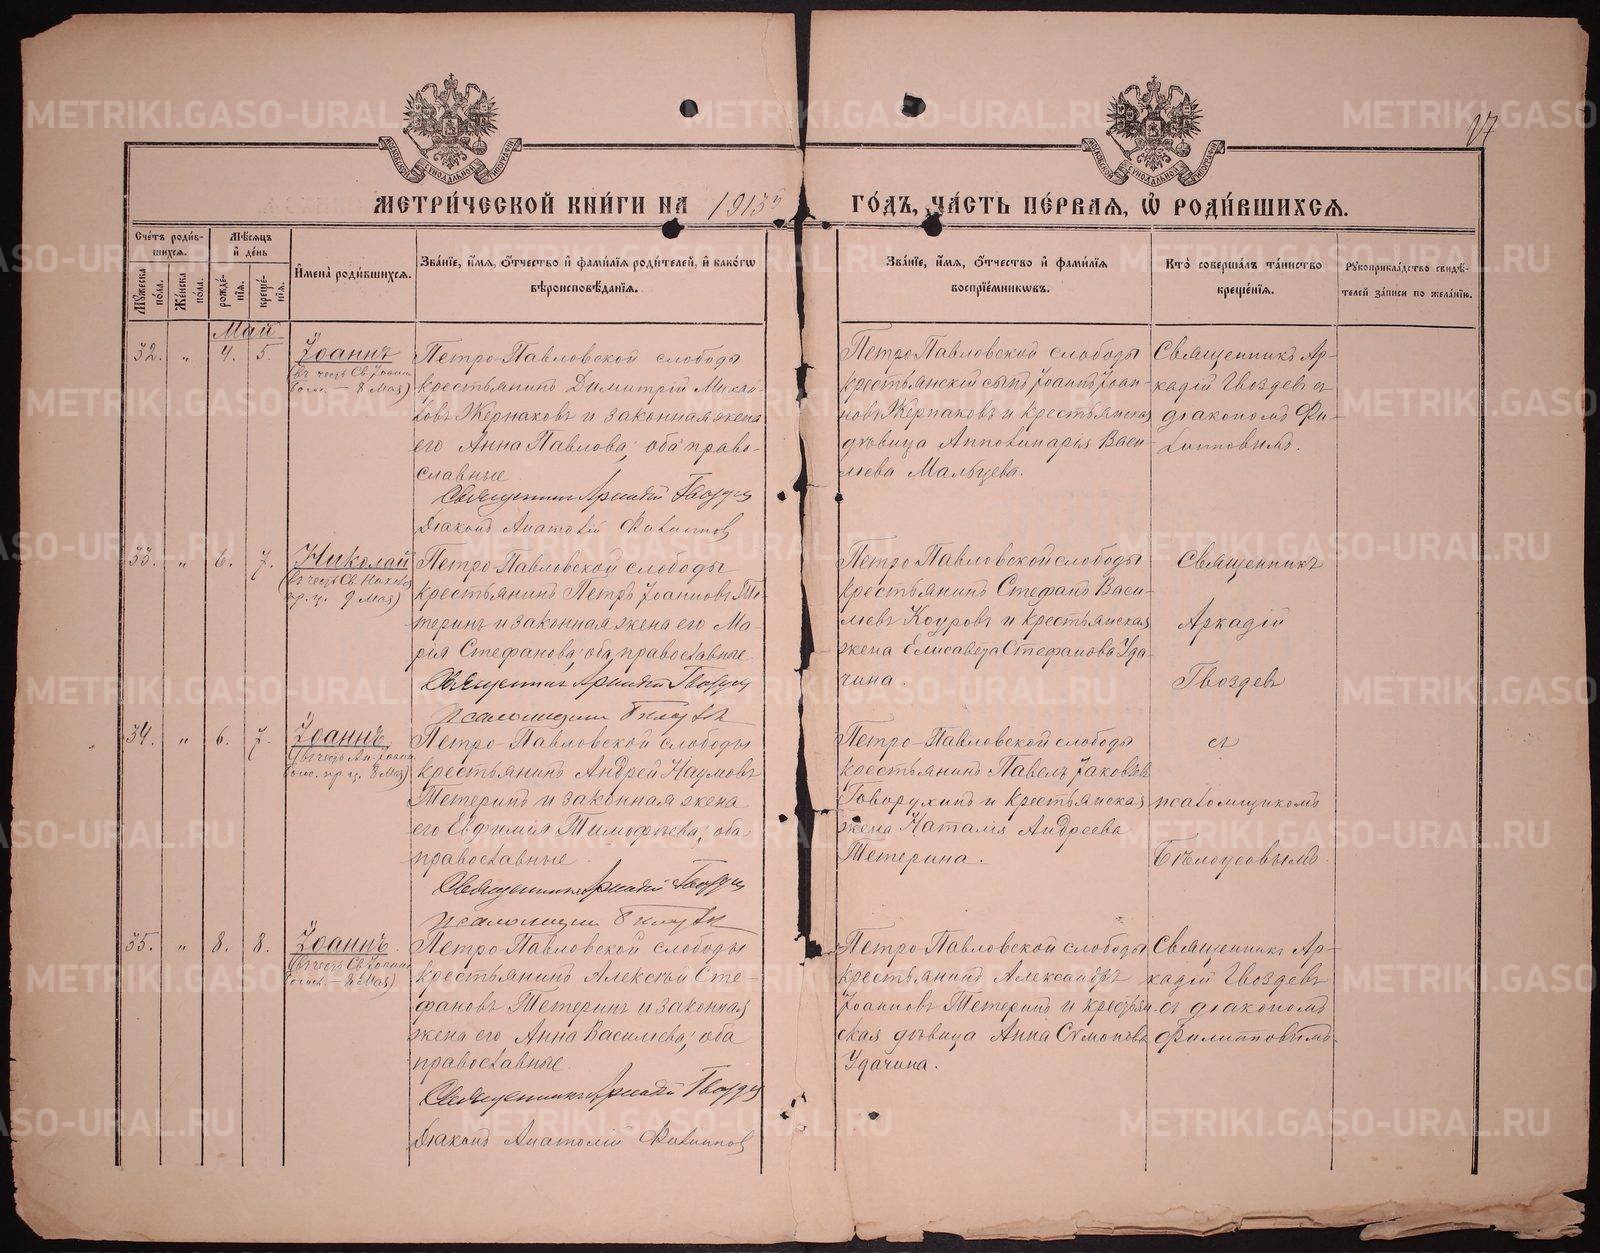 27
МОСКОВСКОЙ СѴНОДАЛЬНОЙ ТИПОГРАФІИ
МОСКОВСКОЙ СѴНОДАЛЬНОЙ ТИПОГРАФІИ
МЕТРИ́ЧЕСКОЙ КНИ́ГИ НА 1913
ГО́ДЪ, ЧА́СТЬ ПЕ́РВАЯ, Ѡ РОДИ́ВШИХСЯ.
Сче́тъ роди́в-
шихся.
Мꙋ́жеска по́ла.
Же́нска по́ла.
Мѣ́сяцъ
и҆ де́нь
рожде́-
нїя.
креще́-
нїя.
И҆мена̀ роди́вшихся.
Зва́нїе, и҆́мя, ѻ҆́тчество и҆ фами́лїя роди́телей, и҆ како́гѡ
вѣроисповѣ́данїя.
Зва́нїе, и҆́мя, ѻ҆́тчество и҆ фами́лїя
воспрїе́мникѡвъ.
Кто̀ соверша́лъ та́инство
креще́нїя.
Рꙋкоприкла́дство свидѣ́-
телей за́писи по жела́нїю.
Май
32. „ 4. 5. Іоаннъ
(въ честь Св. Іоанна
Богос. – 8 мая)
Петро-Павловской слободы
крестьянинъ Димитрій Михаи-
ловъ Жернаковъ и законная жена
его Анна Павлова; оба право-
славные
Священникъ Аркадій Гвоздев
Діаконъ Анатолій Филиппов
Петро-Павловской слободы
крестьянскій сынъ Іоаннъ Іоан-
новъ Жернаковъ и крестьянская
дѣвица Апполинарія Васи-
льева Мальцева.
Священникъ Ар-
кадій Гвоздевъ съ
діакономъ Фи-
липповымъ.
33. „ 6. 7. Николай
(въ честь Св. Николая
9 мая)
Петро-Павловской слободы
крестьянинъ Петръ Іоанновъ Те-
теринъ и законная жена его Ма-
рія Стефанова; оба православные
Священникъ Аркадій Гвоздев
псаломщик
Петро-Павловской слободы
крестьянинъ Стефанъ Васи-
льевъ Коуровъ и крестьянская
жена Елисавета Стефанова Уда-
чина.
Священникъ
Аркадій
Гвоздевъ
34. „ 6. 7. Іоаннъ
(въ честь Ап. Іоанна
Богос. 8 мая)
Петро-Павловской слободы
крестьянинъ Андрей Наумовъ
Тетеринъ и законная жена
его Евфимія Тимофѣева; оба
православные
Священникъ Аркадій Гвоздев
псаломщик
Петро-Павловской слободы
крестьянинъ Павелъ Іаковлевъ
Говорухинъ и крестьянская
жена Наталія Андреева
Тетерина.
съ
псаломщикомъ
Бѣлоусовымъ.
35. „ 8. 8. Іоаннъ.
(въ честь Св. Іоанна
Богос. – 8 мая)
Петро-Павловской слободы
крестьянинъ Алексѣй Сте-
фановъ Тетеринъ и законная
жена его Анна Васильева; оба
православные.
Священникъ Аркадій Гвоздев
Діаконъ Анатолій Филиппов
Петро-Павловской слободы
крестьянинъ Александръ
Іоанновъ Тетеринъ и крестьян-
ская дѣвица Анна Симонова
Удачина.
Священникъ Ар-
кадій Гвоздевъ
съ діакономъ
Филипповымъ.
METRIKI.GASO-URAL.RU